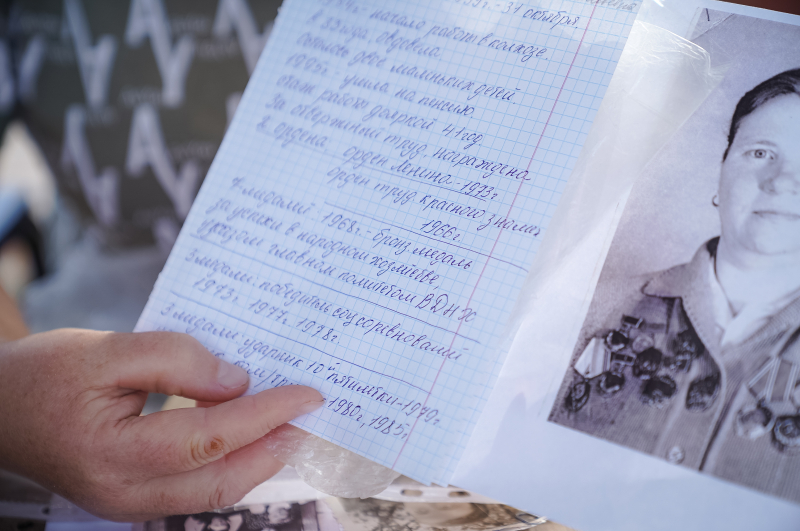 г.- начало работ в колхозе.
- 31 октября.
В 33 года овдовела.
двое маленьких детей
1985г. - ушла на пенсию.
стаж работ дояркой 41 год.
За отверженый труд, награждена
2 ордена орден Ленина - 1973г
орден труд красного знамя
1966г.
7 медалий 1968г.- бронз медаль
за успехи в народном хозяйстве,
главном комитетом ВДНХ
3 медали: победитель соцсоревнований
1973г. 1977г. 1978г.
3 медали: ударник 10ⁱⁱ пятилетки - 1979г.
1980г, 1985г